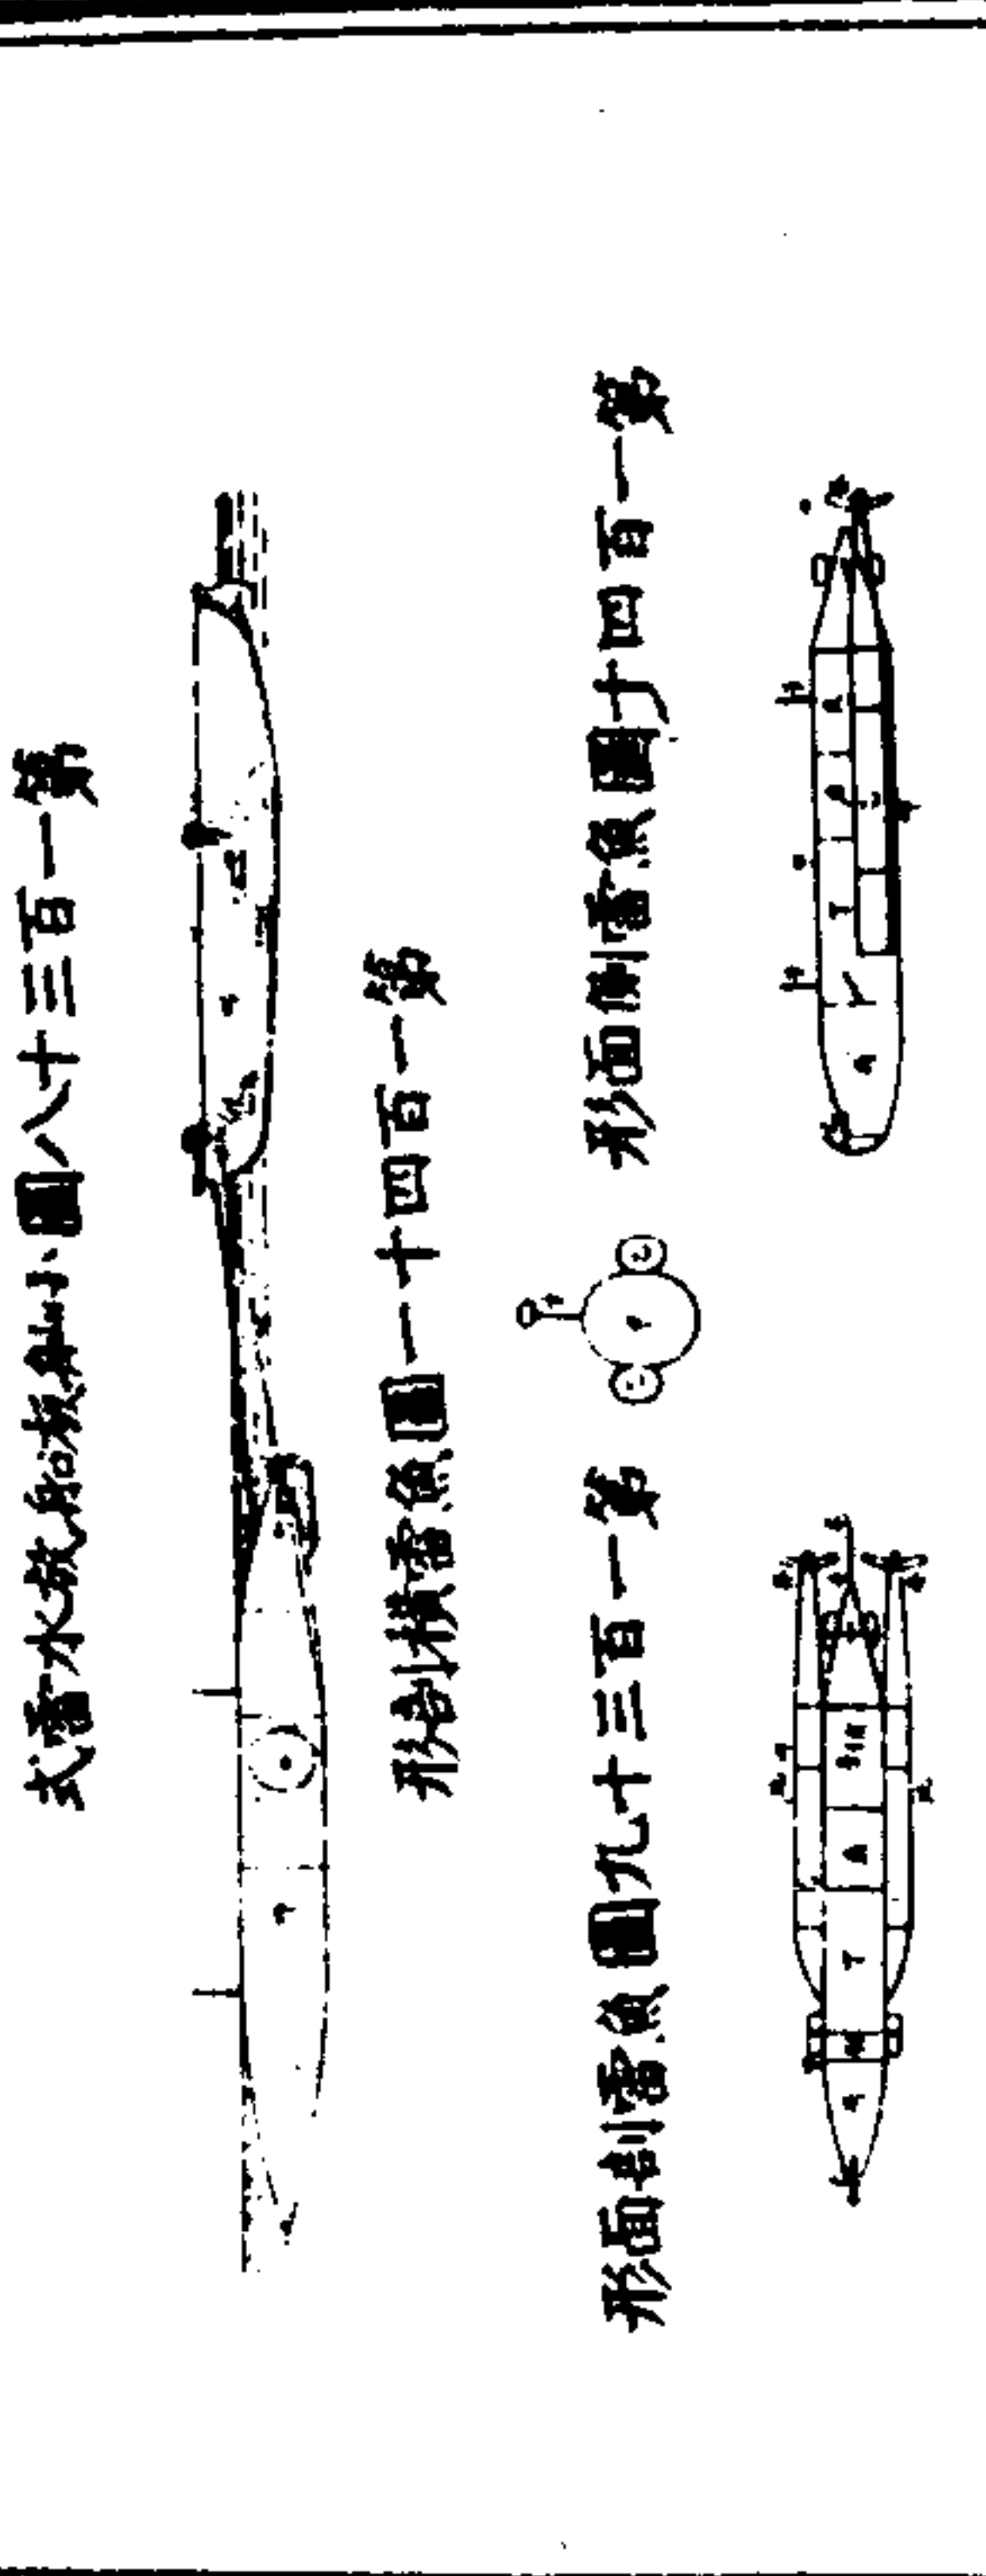 第一百三十八圖小舢板船放水雷式
第一百三十九圖魚雷剖面形
第一百四十圖魚雷側面形
第一百四十一圖魚雷橫剖形